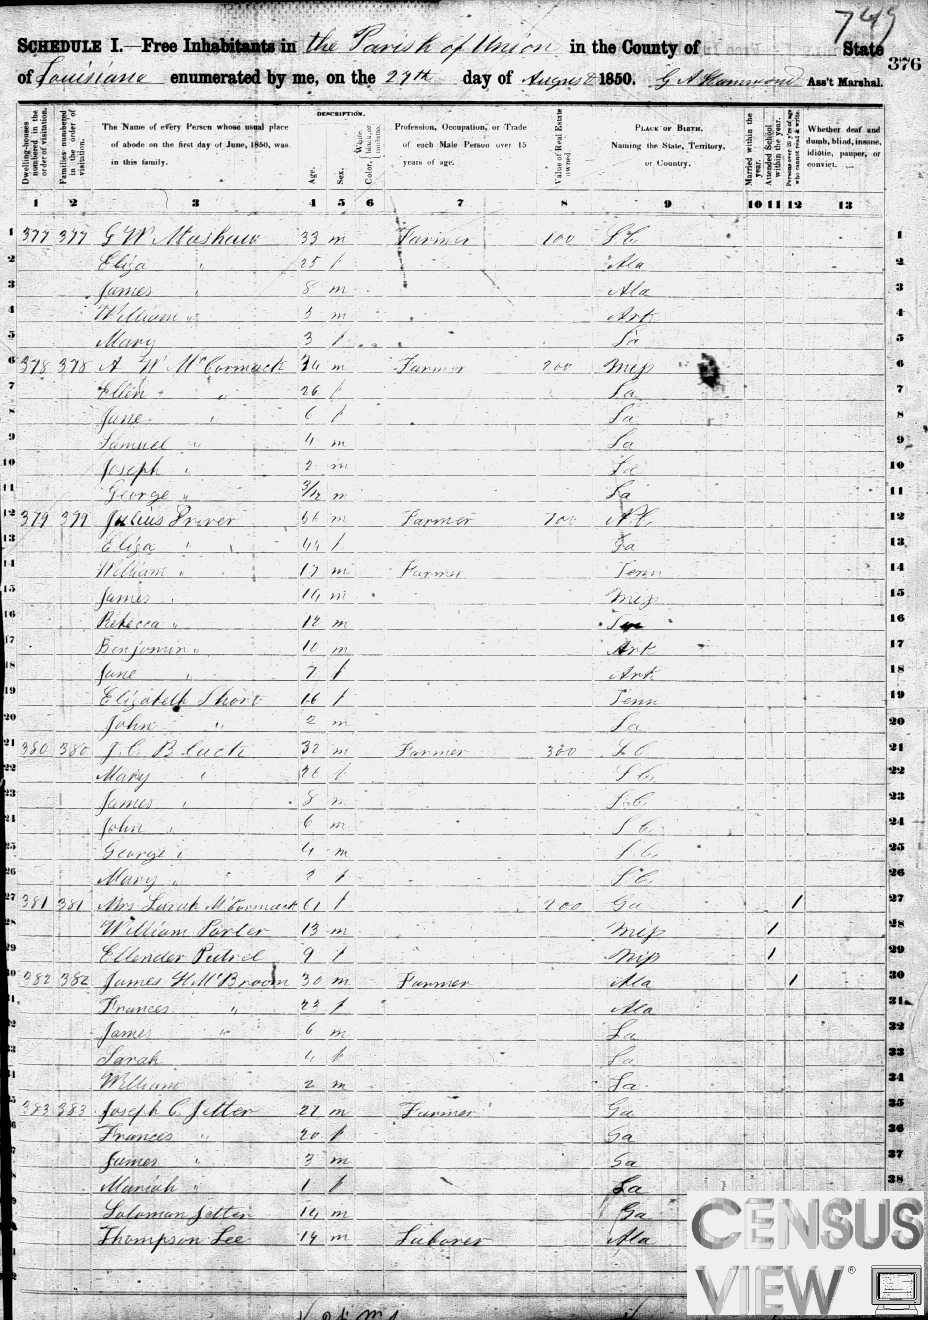 749
SCHEDULE I.—Free Inhabitants in the Parish of Union in the County of State
376
of Louisiana enumerated by me, on the 29th day of August 1850. G A Hammond Ass't Marshal.
Dwelling-houses numbered in the order of visitation.
Families numbered in the order of visitation.
The Name of every Person whose usual place of abode on the first day of June, 1850, was in this family.
DESCRIPTION.
Age.
Sex.
Color, White, black, or mulatto.
Profession, Occupation, or Trade of each Male Person over 15 years of age.
Value of Real Estate owned.
PLACE OF BIRTH, Naming the State, Territory, or Country.
Married within the year.
Attended School within the year.
Persons over 20 y'rs of age who cannot read & write.
Whether deaf and dumb, blind, insane, idiotic, pauper, or convict.
1 2 3 4 5 6 7 8 9 10 11 12 13
1 377 377 G W Mashaw 33 m Farmer 100 S C 1
2 Eliza " 25 f Ala 2
3 James " 8 m Ala 3
4 William " 5 m Ark 4
5 Mary 3 f La 5
6 378 378 A W McCormack 34 m Farmer 200 Miss 6
7 Ellen " 26 f La 7
8 Jane " 6 f La 8
9 Samuel " 4 m La 9
10 Joseph " 2 m La 10
11 George " 3/12 m La 11
12 379 379 Julius 56 m Farmer 700 N C 12
13 Eliza " " 44 f Ga 13
14 William " 17 m Farmer Tenn 14
15 James " 14 m Miss 15
16 Rebecca " 12 m 16
17 Benjamin " 10 m Ark 17
18 Jane " 7 f Ark 18
19 Elizabeth Short 16 f Tenn 19
20 John " 2 m La 20
21 380 380 J. C. Black 32 m Farmer 300 S C 21
22 Mary " 26 f S C 22
23 James " 8 m S C 23
24 John " 6 m S C 24
25 George " 4 m S C 25
26 Mary " 2 f S C 26
27 381 381 Mrs Sarah McCormack 61 f 200 Ga 1 27
28 William Porter 13 m Miss 1 28
29 Ellender 9 f Miss 1 29
30 382 382 James H McBroom 30 m Farmer Ala 1 30
31 Frances " 23 f Ala 31
32 James " 6 m La 32
33 Sarah 4 f La 33
34 William 2 m La 34
35 383 383 Joseph C Jetter 22 m Farmer Ga 35
36 Frances " 20 f Ga 36
37 James " 3 m Ga 37
38 Mariah " 1 f La 38
Soloman Jetter 14 m Ga
Thompson Lee 14 m Laborer Ala
CENSUS VIEW®